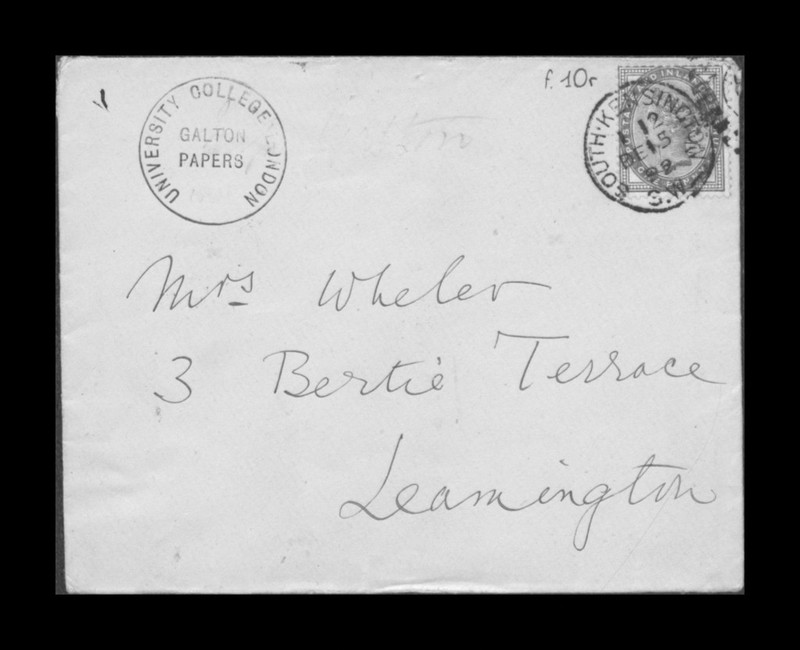 UNIVERSITY COLLEGE LONDON
GALTON
PAPERS
f. 10r
SOUTH·KENSINGTON
12
15
S.W.
Mrs Wheler
3 Bertie Terrace
Leamington